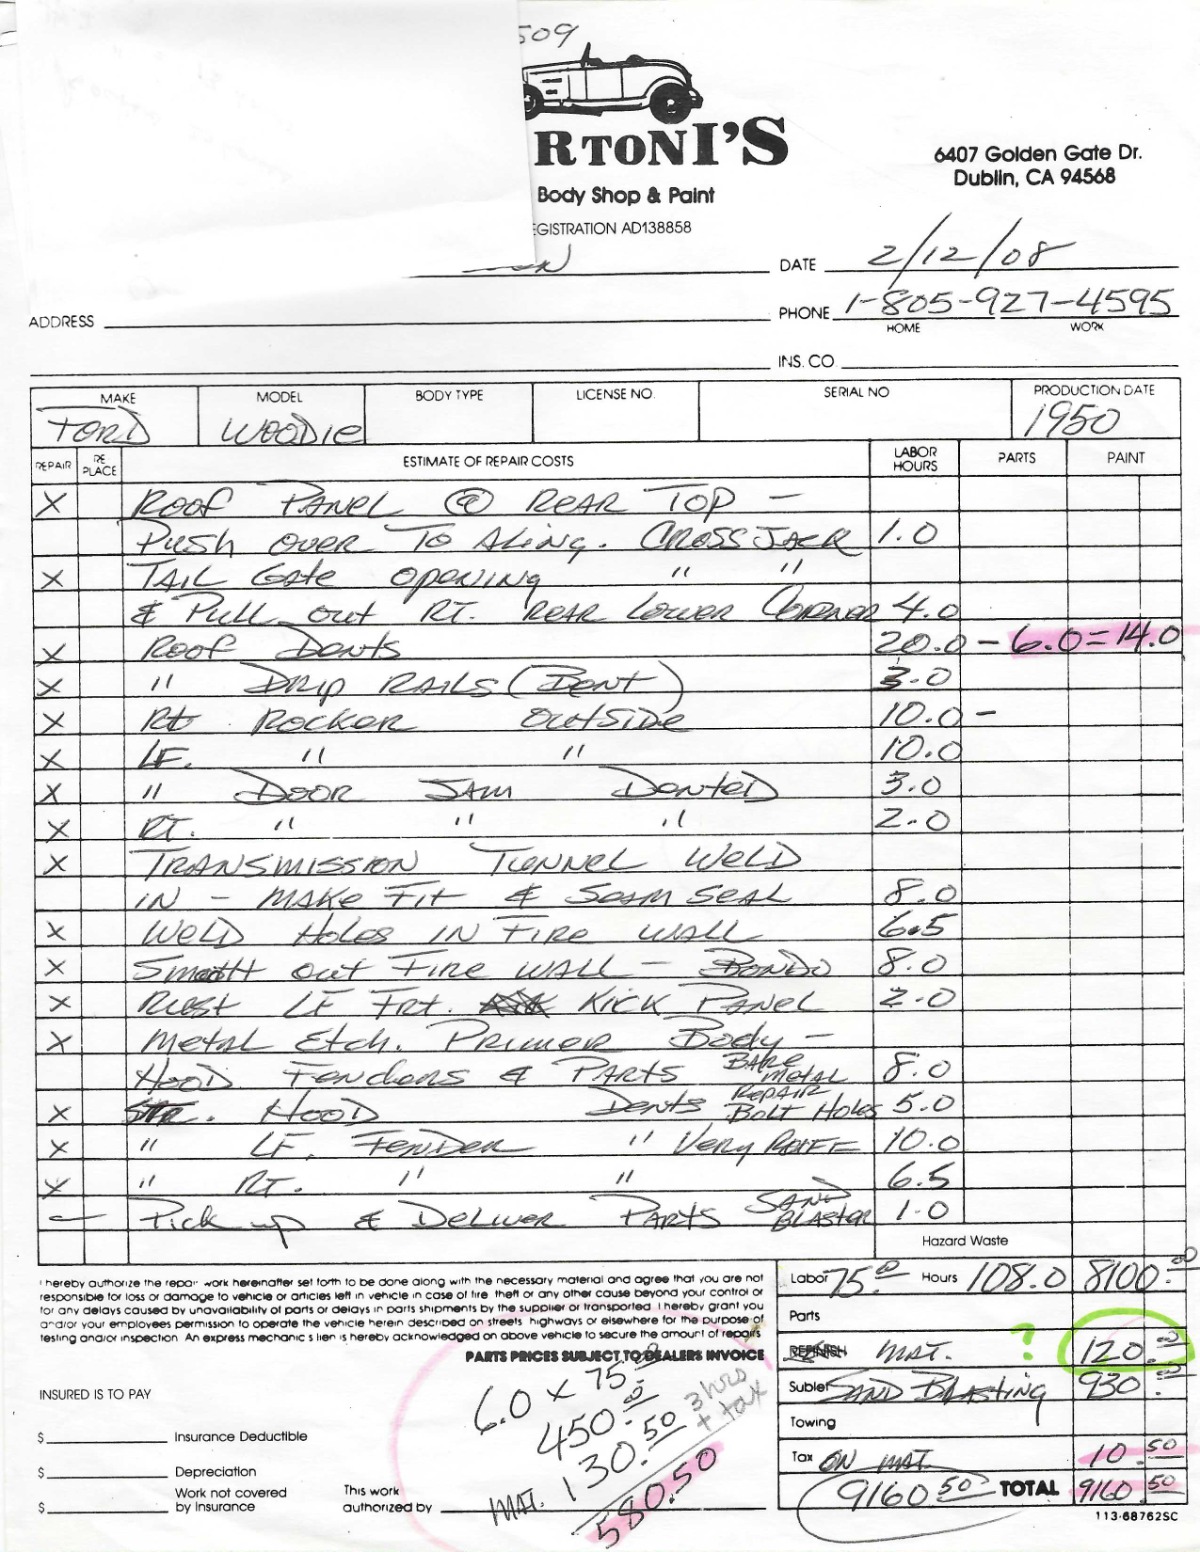 509
RTONI'S
Body Shop & Paint
EGISTRATION AD138858
6407 Golden Gate Dr.
Dublin, CA 94568
DATE 2/12/08
ADDRESS
PHONE 1-805-927-4595
HOME WORK
INS. CO.
MAKE MODEL BODY TYPE LICENSE NO. SERIAL NO PRODUCTION DATE
FORD WOODIE 1950
REPAIR RE PLACE ESTIMATE OF REPAIR COSTS LABOR HOURS PARTS PAINT
X Roof Panel @ Rear Top -
Push over To Aling. Cross Jack 1.0
X Tail Gate opening " "
& Pull out RT. Rear Lower Corner 4.0
X Roof Dents 20.0 - 6.0 = 14.0
X " Drip Rails (Bent) 3.0
X Rt Rocker outside 10.0 -
X LF. " " 10.0
X " Door Jam Dented 3.0
X RT. " " " 2.0
X Transmission Tunnel Weld
in - Make Fit & Seam Seal 8.0
X Weld Holes in Fire Wall 6.5
X Smooth out Fire Wall - Bondo 8.0
X Rust LF Frt. Kick Panel 2.0
X Metal Etch. Primer Body -
Hood Fenders & Parts Bare Metal 8.0
X Str. Hood Dents Repair Bolt Holes 5.0
X " LF. Fender " Very Ruff 10.0
X " RT. " " 6.5
- Pick up & Deliver Parts Sand Blaster 1.0
Hazard Waste
I hereby authorize the repair work hereinafter set forth to be done along with the necessary material and agree that you are not
responsible for loss or damage to vehicle or articles left in vehicle in case of fire theft or any other cause beyond your control or
for any delays caused by unavailability of parts or delays in parts shipments by the supplier or transported I hereby grant you
and/or your employees permission to operate the vehicle herein described on streets highways or elsewhere for the purpose of
testing and/or inspection An express mechanic's lien is hereby acknowledged on above vehicle to secure the amount of repairs
PARTS PRICES SUBJECT TO DEALERS INVOICE
Labor 75.00 Hours 108.0 8100.00
Parts
REFINISH MAT. ? 120.00
Sublet Sand Blasting 930.00
Towing
Tax on MAT. 10.50
9160 50 TOTAL 9160.50
113-68762SC
INSURED IS TO PAY
$ Insurance Deductible
$ Depreciation
$ Work not covered by Insurance
This work authorized by
6.0 x 75.00
450.00
MAT. 130.50
580.50
3 hrs
+ tax